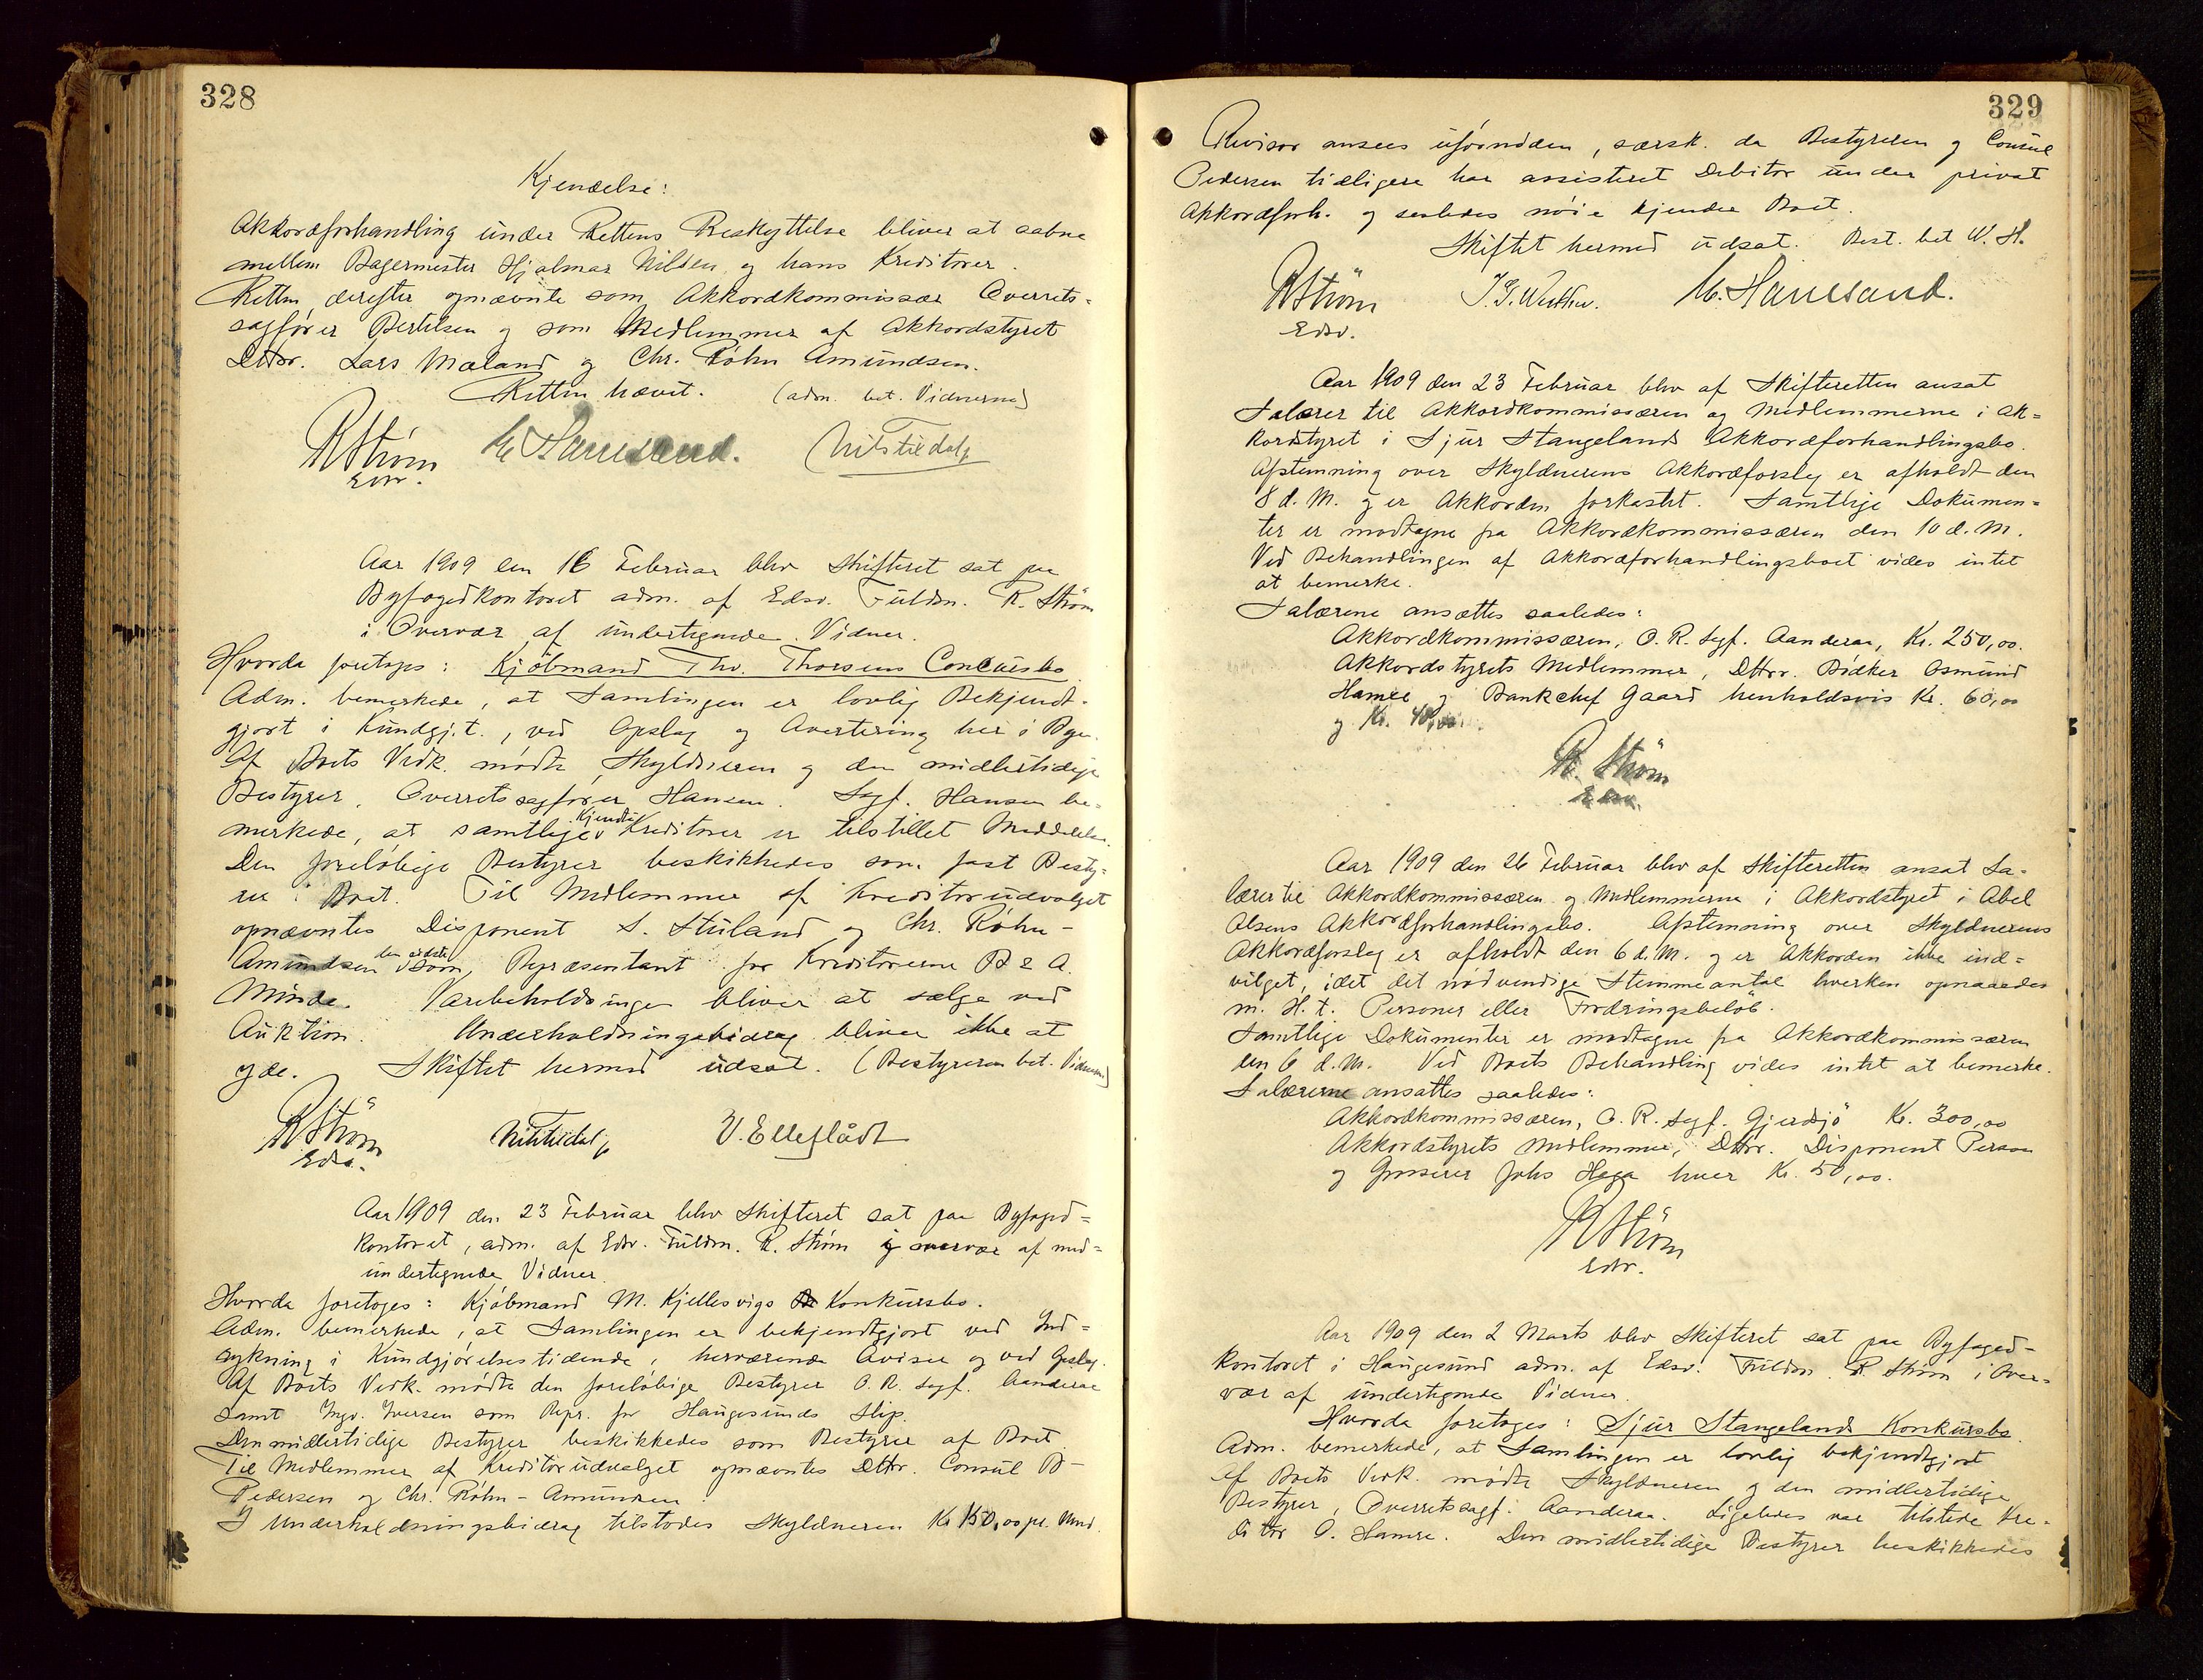 328
Kjendelse:
Akkordforhandling under Rettens Beskyttelse bliver at aabne
mellem Bagermester Hjalmar Nilsen og hans Kreditorer.
Retten derefter opnævnte som Akkordkommissær Overrets-
sagfører Bertelsen og som Medlemmer af Akkordstyret
DHrr. Lars Mæland og Chr. Røhn Amundsen.
Retten hævet. (adm. bet. Vidnerne)
R Strøm
Edsv.
Aar 1909 den 16 Februar blev Skifteret sat paa
Byfogedkontoret adm. af Edsv. Fuldm. R. Strøm
i Overvær af undertegnede Vidner.
Hvorda foretoges: Kjøbmand Thv. Thorsens Concursbo.
Adm. bemerkede, at Samlingen er lovlig Bekjendt-
gjort i Kundgj.t., ved Opslag og Avertering her i Byen.
Af Boets Vedk. mødte Skyldneren og den midlertidige
Bestyrer, Overretssagfører Hansen. Sagf. Hansen be-
merkede, at samtlige kjendte Kreditorer er tilstillet Meddelelse.
Den foreløbige Bestyrer beskikkedes som fast Besty-
rer i Boet. Til Medlemmer af Kreditorudvalget
opnævntes Disponent S. Stuland og Chr. Røhn-
Amundsen den sidste som Repræsentant for Kreditorerne B & A.
Minde. Varebeholdningen bliver at sælge ved
Auktion. Underholdningsbidrag bliver ikke at
yde. Skiftet hermed udsat. (Bestyreren bet. Vidnerne)
R Strøm V. Elleflådt
Edsv.
Aar 1909 den 23 Februar blev Skifteret sat paa Byfoged-
kontoret, adm. af Edsv. Fuldm. R. Strøm i overvær af med-
undertegnede Vidner.
Hvorda foretoges: Kjøbmand M. Kjellesvigs Konkursbo.
Adm. bemerkede, at Samlingen er bekjendtgjort ved Ind-
rykning i Kundgjørelsestidende, herværende Aviser og ved Opslag.
Af Boets Vedk. mødte den foreløbige Bestyrer O. R. sagf. Aanderaa
samt Ingv. Iversen som Repr. for Haugesunds Slip.
Den midlertidige Bestyrer beskikkedes som Bestyrer af Boet.
Til Medlemmer af Kreditorudvalget opnævntes DHrr. Consul B-
Pedersen og Chr. Røhn-Amundsen.
I Underholdningsbidrag tilstodes Skyldneren Kr 150,00 pr. Mnd.
329
Revisor ansees ufornøden, særsk. da Bestyreren og Consul
Pedersen tidligere har assisteret Debitor under privat
Akkordforh. og saaledes nøie kjender Boet.
Skiftet hermed udsat. Best. bet V. H.
R Strøm
Edsv.
Aar 1909 den 23 Februar blev af Skifteretten ansat
Salærer til Akkordkommissæren og Medlemmerne i Ak-
kordstyret i Sjur Stangelands Akkordforhandlingsbo.
Afstemning over Skyldnerens Akkordforslag er afholdt den
8 d. M. og er Akkorden forkastet. Samtlige Dokumen-
ter er modtagne fra Akkordkommissæren den 10 d. M.
Ved Behandlingen af Akkordforhandlingsboet vides intet
at bemerke.
Salærene ansættes saaledes:
Akkordkommissæren, O. R. Sagf. Aanderaa, Kr. 250,00.
Akkordstyrets Medlemmer, DHrr. Bødker Osmund
Hamre og Bankchef Gaard henholdsvis Kr. 60,00
og Kr. 40,00.
R. Strøm
Edsv.
Aar 1909 den 26 Februar blev af Skifteretten ansat Sa-
lærer til Akkordkommissæren og Medlemmerne i Akkordstyret i Abel
Olsens Akkordforhandlingsbo. Afstemning over Skyldnerens
Akkordforslag er afholdt den 6 d. M. og er Akkorden ikke ind-
vilget, idet det nødvendige Stemmeantal hverken opnaaedes
m. H. t. Personer eller Fordringsbeløb.
Samtlige Dokumenter er modtagne fra Akkordkommissæren
den 6 d. M. Ved Boets Behandling vides intet at bemerke.
Salærerne ansættes saaledes:
Akkordkommissæren, O. R. Sagf. Gjerdsjø Kr. 300,00
Akkordstyrets Medlemmer, DHrr. Disponent Person
og Grosserer Johs Haga hver Kr. 50,00.
R Strøm
Edsv.
Aar 1909 den 2 Marts blev Skifteret sat paa Byfoged-
kontoret i Haugesund adm. af Edsv. Fuldm. R. Strøm i Over-
vær af undertegnede Vidner.
Hvorda foretoges: Sjur Stangelands Konkursbo.
Adm. bemerkede, at Samlingen er lovlig bekjendtgjort
Af Boets Vedk. mødte Skyldneren og den midlertidige
Bestyrer, Overretssagf. Aanderaa. Ligeledes var tilstede Kre-
ditor O. Hamre. Den midlertidige Bestyrer beskikkedes